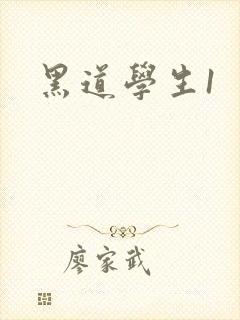 黑道學生1
廖家武